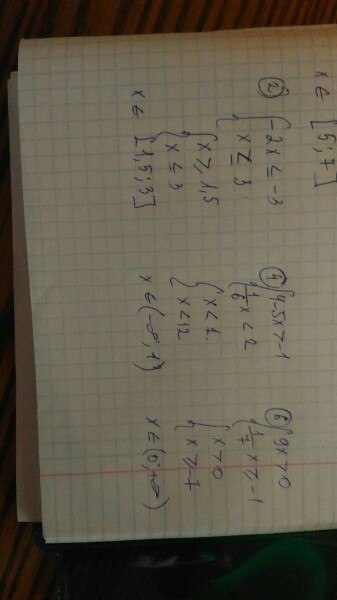 x ∈ [5; 7]
② { -2x ≤ -3
x ≤ 3
{ x ≥ 1,5
x ≤ 3
x ∈ [1,5; 3]
④ { 4-5x > -1
1/6 x < 2
{ x < 1.
x < 12
x ∈ (-∞; 1)
⑥ { 9x > 0
1/7 x ≥ -1
{ x > 0
x ≥ -7
x ∈ (0; +∞)